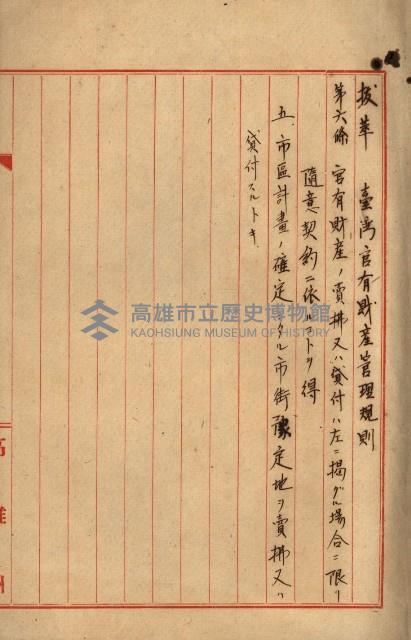 拔萃　臺灣官有財產管理規則
第六條　官有財產ノ賣拂又ハ貸付ハ左ニ揭グル場合ニ限リ
隨意契約ニ依ルコトヲ得
五、市區計畫ノ確定シタル市街豫定地ヲ賣拂又ハ
貸付スルトキ
高雄州
高雄市立歷史博物館
KAOHSIUNG MUSEUM OF HISTORY